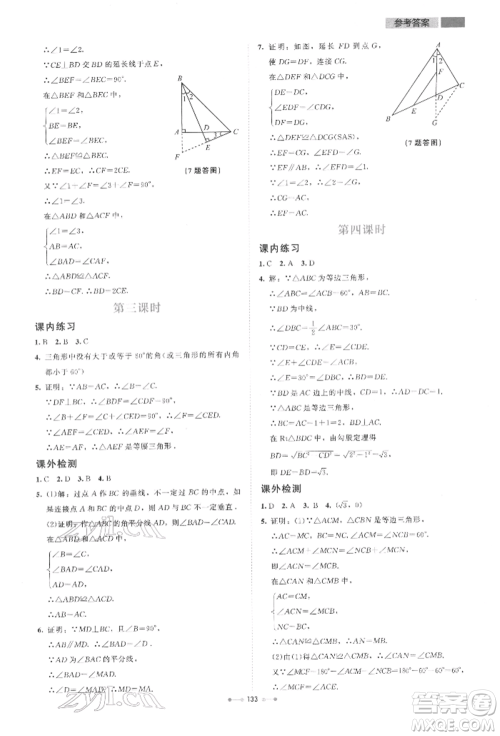 参考答案
∴∠1=∠2.
∵CE⊥BD的延长线于点E,
∴∠BEF=∠BEC=90°.
在△BEF和△BEC中,
∠1=∠2,
BE=BE,
∠BEF=∠BEC,
∴△BEF≌△BEC.
∴EF=EC. ∴CF=2CE.
又∵∠1+∠F=∠ACF+∠F=90°,
∴∠1=∠ACF.
在△ABD和△ACF中,
∠1=∠ACF,
AB=AC,
∠BAD=∠CAF,
∴△ABD≌△ACF.
∴BD=CF. ∴BD=2CE.
[7题答图]
第三课时
课内练习
1. B 2. B 3. C
4. 三角形中没有大于或等于60°的角(或三角形的所有内角
都小于60°)
5. 证明:∵AB=AC, ∴∠B=∠C.
∵DF⊥BC, ∴∠DFB=∠EFC=90°.
∴∠B+∠BDF=∠C+∠E=90°.
∴∠BDF=∠E.
∵∠BDF=∠ADE, ∴∠ADE=∠E.
∴AD=AE. ∴△ADE是等腰三角形.
课外检测
1. B 2. A 3. C 4. A
5. (1)解:过点A作BC的垂线,不一定过BC的中点,如
果连接点A与BC的中点D, AD与BC不一定垂直.
(2)证明:作△ABC的角平分线AD,
在△ABD和△ACD中,
∠B=∠C,
∠BAD=∠CAD,
AD=AD,
∴△ABD≌△ACD.
∴AB=AC.
6. 证明:∵MD⊥BC, ∴∠B+∠BMD=90°.
∵∠BAC=90°, ∴∠B+∠C=90°.
∴∠BMD=∠C.
∵AD为∠BAC的平分线,
7. 证明:如图,延长FD到点G,
使DG=DF,连接CG,
在△EDF和△CDG中,
DE=DC,
∠EDF=∠CDG,
DF=DG,
∴△EDF≌△CDG(SAS).
∴EF=CG, ∠EFD=∠G.
∵EF=AC, ∴AC=CG.
∴∠2=∠G.
∴∠EFD=∠2.
又∵EF∥AB,
∴∠1=∠EFD. ∴∠1=∠2.
[7题答图]
第四课时
课内练习
1. C 2. A 3. D
4. 解:∵△ABC为等边三角形,
∴∠ABC=∠ACB=60°, AB=BC.
∵BD为中线,
∴∠DBC=1/2∠ABC=30°.
∵CD=CE, ∴∠E=∠CDE.
∵∠E+∠CDE=∠ACB,
∴∠E=30°=∠DBC.
∴BD=DE.
∵BD是AC中线, CD=1,
∴AD=DC=1.
∵△ABC是等边三角形,
∴BC=AC=1+1=2, BD⊥AC.
在Rt△BDC中,由勾股定理可得
BD=√BC²-CD²=√3,
即DE=BD=√3.
课外检测
1. C 2. D 3. A 4. (√3, 0)
5. 证明:(1)∵△ACM, △CBN是等边三角形,
∴AC=MC, BC=NC, ∠ACM=∠NCB=60°.
∴∠ACM+∠MCN=∠NCB+∠MCN,
即∠ACN=∠MCB.
在△CAN和△CMB中,
AC=CM,
∠ACN=∠MCB,
NC=BC,
∴△CAN≌△CMB. ∴AN=BM.
(2)由(1)知△CAN≌△CMB,
133